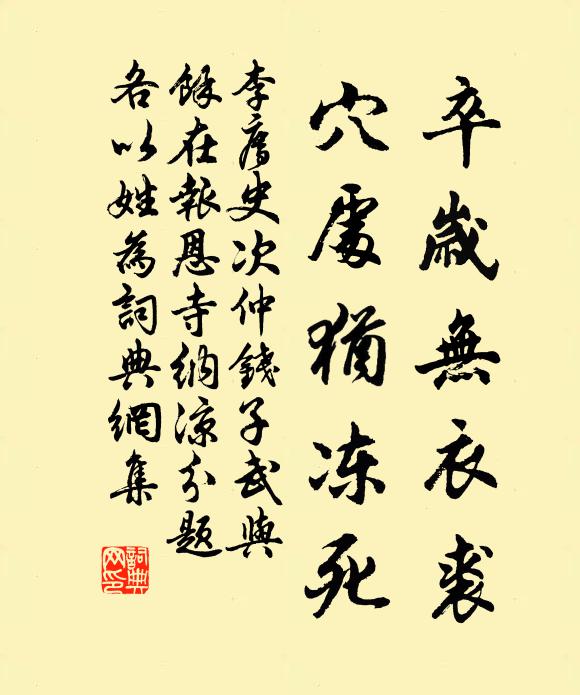 卒歲無衣裘
穴處猶冻死
李廥史次仲錢子武與
餘在報恩寺納凉分題
各以姓為詞典網集
詞典网印